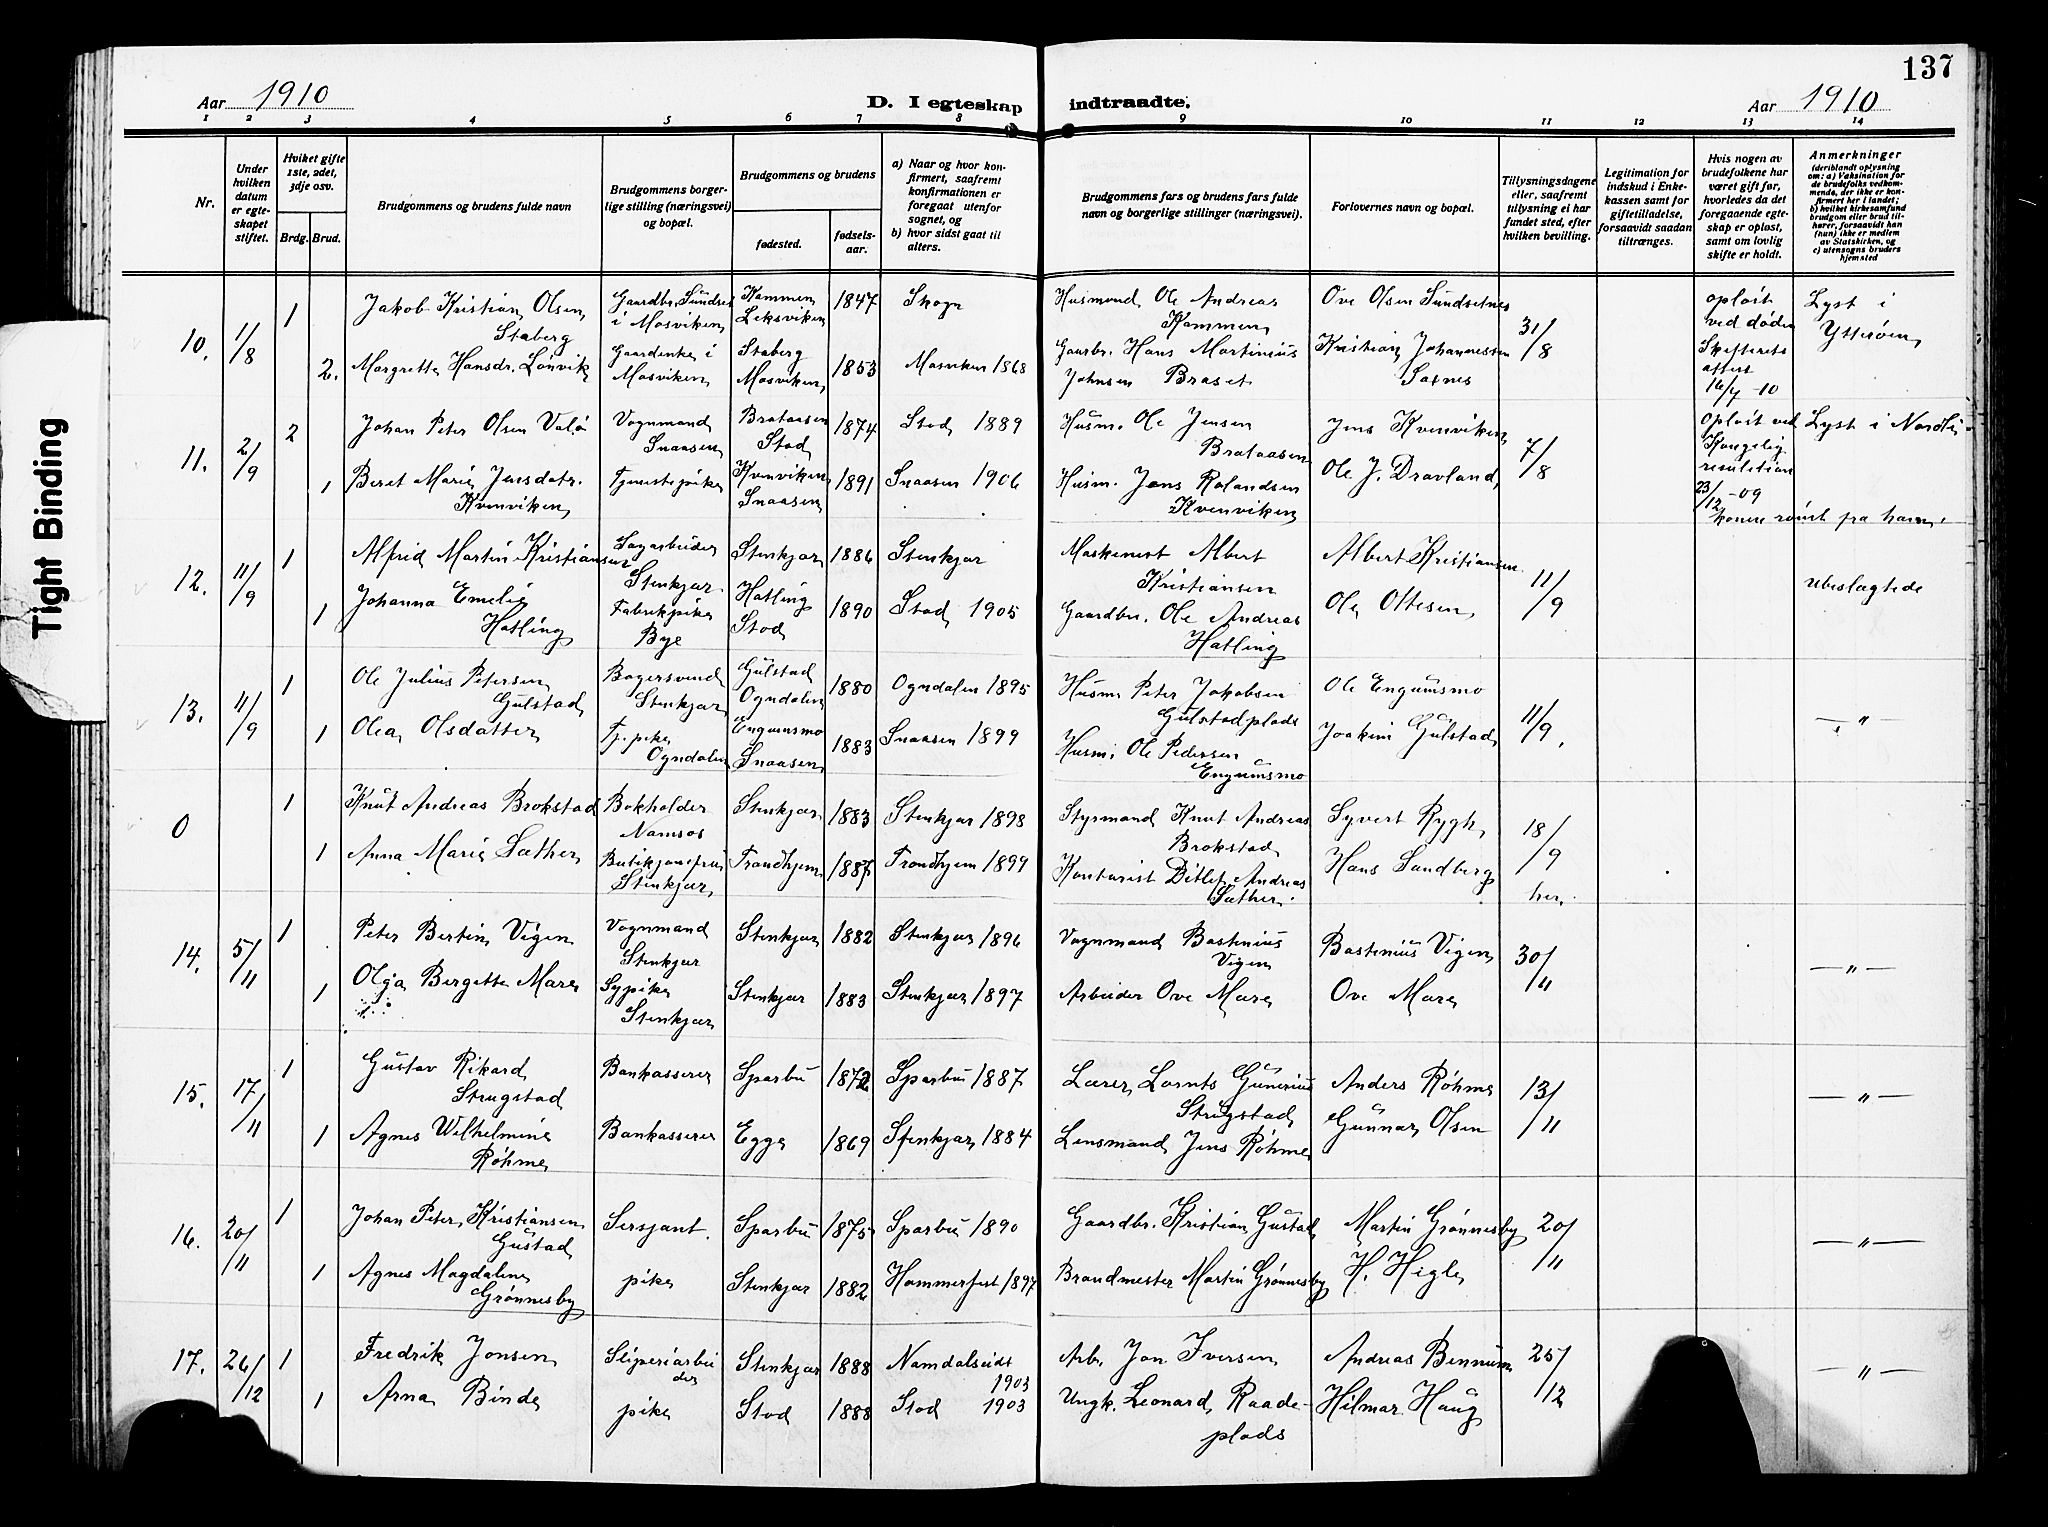 137
Aar 1910
D. I egteskap indtraadte.
Aar 1910
1 2 3 4 5 6 7 8 9 10 11 12 13 14
Nr.
Under hvilken datum er egteskapet stiftet.
Hviket gifte 1ste, 2det, 3dje osv.
Brdg. Brud.
Brudgommens og brudens fulde navn
Brudgommens borgerlige stilling (næringsvei) og bopæl.
Brudgommens og brudens
fødested.
fødselsaar.
a) Naar og hvor konfirmert, saafremt konfirmationen er foregaat utenfor sognet, og
b) hvor sidst gaat til alters.
Brudgommens fars og brudens fars fulde navn og borgerlige stillinger (næringsvei).
Forlovernes navn og bopæl.
Tillysningsdagene eller, saafremt tillysning ei har fundet sted, efter hvilken bevilling.
Legitimation for indskud i Enkekassen samt for gifteti­lladelse, forsaavidt saadan tiltrænges.
Hvis nogen av brudefolkene har været gift før, hvorledes da det foregaaende egteskap er opløst, samt om lovlig skifte er holdt.
Anmerkninger
(deriblandt oplysning om: a) Vaksination for de brudefolks vedkommende, der ikke er konfirmert her i landet; b) hvilket kirkesamfund brudgom eller brud tilhører, forsaavidt han (hun) ikke er medlem av Statskirken, og c) utensogns bruders hjemsted
10. 1/8 1 Jakob Kristian Olsen Staberg Gaardbr. Sundset i Mosviken Kammen Leksviken 1847 Skogn Husmand Ole Andreas Kammen Ove Olsen Sundsetnes 31/8 opløst ved døden Skifterets attest 16/7 -10 Lyst i Ytterøen
2. Margrette Hansdr. Lønvik Gaardenke i Mosviken Staberg Mosviken 1853 Mosviken 1868 Gaarbr. Hans Martinius Johnsen Braset Kristian Johannessen Saxnes
11. 2/9 2 Johan Peter Olsen Valø Vognmand Snaasen Brataasen Stod 1874 Stod 1889 Husm. Ole Jensen Brataasen Jens Kvenviken 7/8 Opløst ved Kongelig resulution 23/12-09 konen rømt fra ham. Lyst i Nordli
1 Beret Marie Jensdatr. Kvenviken Tjenestepike Kvenviken Snaasen 1891 Snaasen 1906 Husm. Jens Rolandsen Kvenviken Ole J. Dravland
12. 11/9 1 Alfrid Martin Kristiansen Sagarbeider Stenkjær Stenkjær 1886 Stenkjær Maskenist Albert Kristiansen Albert Kristiansen 11/9 ubeslægtede
1 Johanna Emelie Hatling Fabrikpike Bye Hatling Stod 1890 Stod 1905 Gaardbr. Ole Andreas Hatling Ole Ottesen
13. 11/9 1 Ole Julius Petersen Gulstad Bagersvend Stenkjær Gulstad Ogndalen 1880 Ogndalen 1895 Husm. Peter Jakobsen Gulstadplads Ole Engumsmo 11/9. —"—
1 Olea Olsdatter Tj. pike Ogndalen Engumsmo Snaasen 1883 Snaasen 1899 Husm. Ole Pedersen Engumsmo Joakim Gulstad
0 1 Knut Andreas Brokstad Bokholder Namsos Stenkjær 1883 Stenkjær 1898 Styrmand Knut Andreas Brokstad Syvert Rygh 18/9 her.
1 Anna Marie Sæther Butikjomfru Stenkjær Trondhjem 1887 Trondhjem 1899 Kontorist Ditlef Andreas Sæther. Hans Sandberg
14. 5/11 1 Peter Bertin Vigen Vognmand Stenkjær Stenkjær 1882 Stenkjær 1896 Vognmand Bastinius Vigen Bastinius Vigen 30/11 —"—
1 Olga Bergette Mære Sypike Stenkjær Stenkjær 1883 Stenkjær 1897 Arbeider Ove Mære Ove Mære
15. 17/11 1 Gustav Rikard Strugstad Bankasserer Sparbu 1872 Sparbu 1887 Lærer Lornts Gunerius Strugstad Anders Røhme 13/11 —"—
1 Agnes Wilhelmine Røhme Bankasserer Egge 1869 Stenkjær 1884 Lensmand Jens Røhme Gunnar Olsen
16. 20/11 1 Johan Peter Kristiansen Gustad Sersjant. Sparbu 1875 Sparbu 1890 Gaardbr. Kristian Gustad Martin Grønnesby 20/11 —"—
1 Agnes Magdalene Grønnesby pike Stenkjær 1882 Hammerfest 1897 Brandmester Martin Grønnesby H. Higle
17. 26/12 1 Fredrik Jonsen Sliperiarbeider Stenkjær 1888 Namdalseidt 1903 Arb. Jon Iversen Andreas Bennum 25/12 —"—
1 Arna Binde pike Stod 1888 Stod 1903 Ungk. Leonard Raadeplads Hilmar Haug
Tight Binding